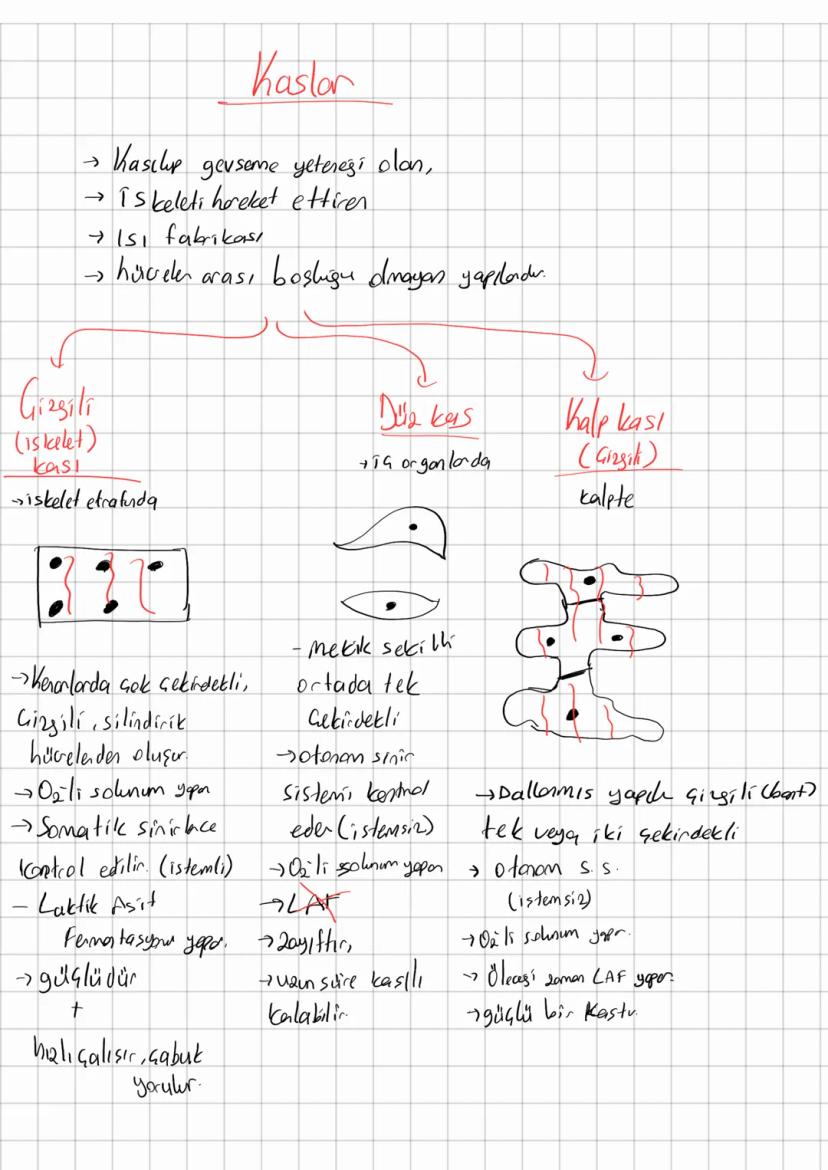 Kaslar
→ Kasılıp gevşeme yeteneği olan,
→ İskeleti hareket ettiren
→ Isı fabrikası
→ hücreler arası boşluğu olmayan yapılardır.
Çizgili
(iskelet)
kası
→ iskelet etrafında
→ Kenarlarda çok çekirdekli,
Çizgili, silindirik
hücrelerden oluşur.
→ O₂'li solunum yapar
→ Somatik sinirlerce
kontrol edilir. (istemli)
- Laktik Asit
Fermantasyonu yapar.
→ güçlüdür
+
hızlı çalışır, çabuk
yorulur.
Düz kas
→ iç organlarda
- Mekik şekilli
ortada tek
çekirdekli
→ otonom sinir
sistemi kontrol
eder (istemsiz)
→ O₂'li solunum yapar
→ LAF
→ zayıftır,
→ uzun süre kasılı
kalabilir.
Kalp kası
(Çizgili)
kalpte
→ Dallanmış yapılı çizgili (bant)
tek veya iki çekirdekli
→ otonom s.s.
(istemsiz)
→ O₂'li solunum yapar.
→ Öleceği zaman LAF yapar.
→ güçlü bir kastır.